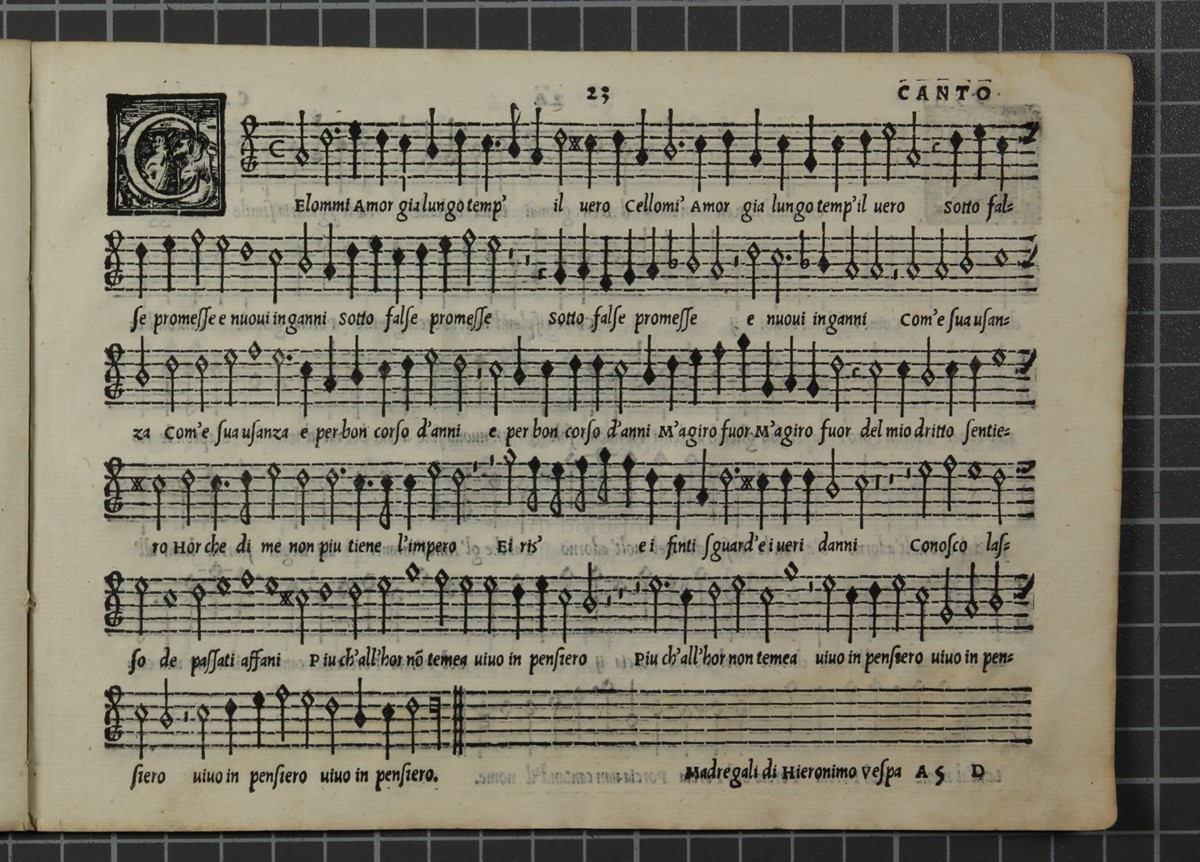 23 CANTO
C
Elommi Amor gia lungo temp' il uero Cellomi' Amor gia lungo temp' il uero Sotto fal=
se promesse e nuoui inganni Sotto false promesse Sotto false promesse e nuoui inganni Com'e sua usan=
za Com'e sua usanza e per bon corso d'anni e per bon corso d'anni M'agiro fuor M'agiro fuor del mio dritto sentie=
ro Hor che di me non piu tiene l'impero Ei ris' e i finti sguard' e i ueri danni Conosco las=
so de passati affani Piu ch'all'hor nõ temea uiuo in pensiero Piu ch'all'hor non temea uiuo in pensiero uiuo in pen=
siero uiuo in pensiero uiuo in pensiero.
Madregali di Hieronimo Vespa A 5 D